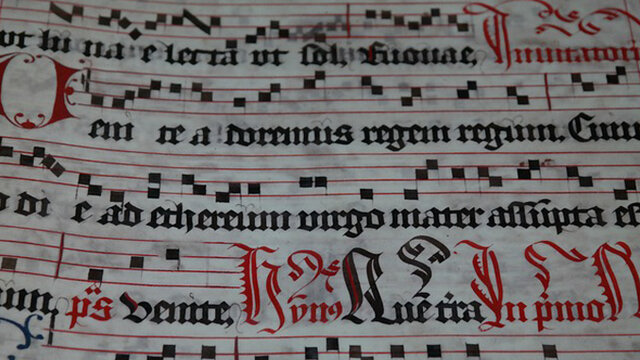 vt lu na e lecta vt sol. Euouae, Inuitatori
Veni te a doremus regem regum. Cuiu
o di e ad ethereum virgo mater assūpta es
um, p̄s Venite, Hȳnꝰ Quē t̄ra In p̄mo N